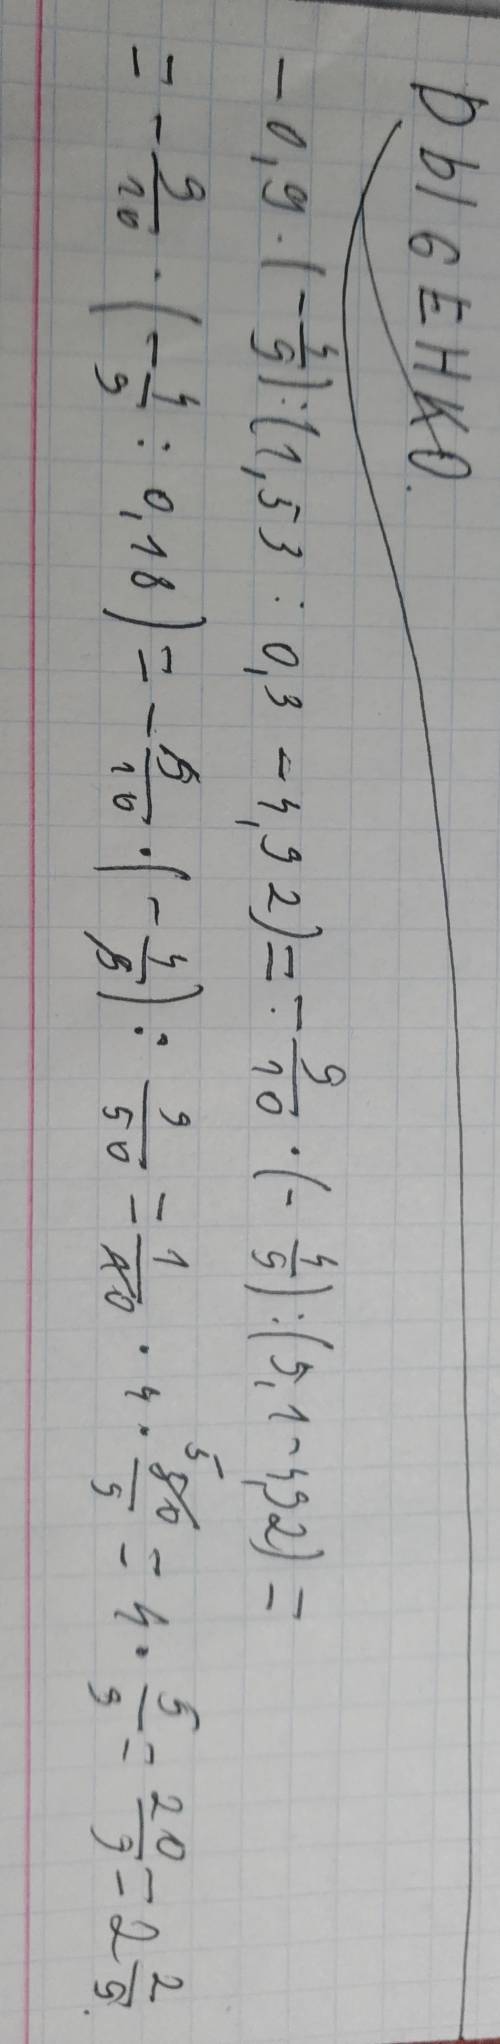 РЫБЕНКО.
-0,9 · (-4/9) : (1,53 : 0,3 - 4,92) = -9/10 · (-4/9) : (5,1 - 4,92) =
= -9/10 · (-4/9 : 0,18) = -9/10 · (-4/9) : 9/50 = 1/10 · 4 · 50/9 = 4 · 5/9 = 20/9 = 2 2/9.